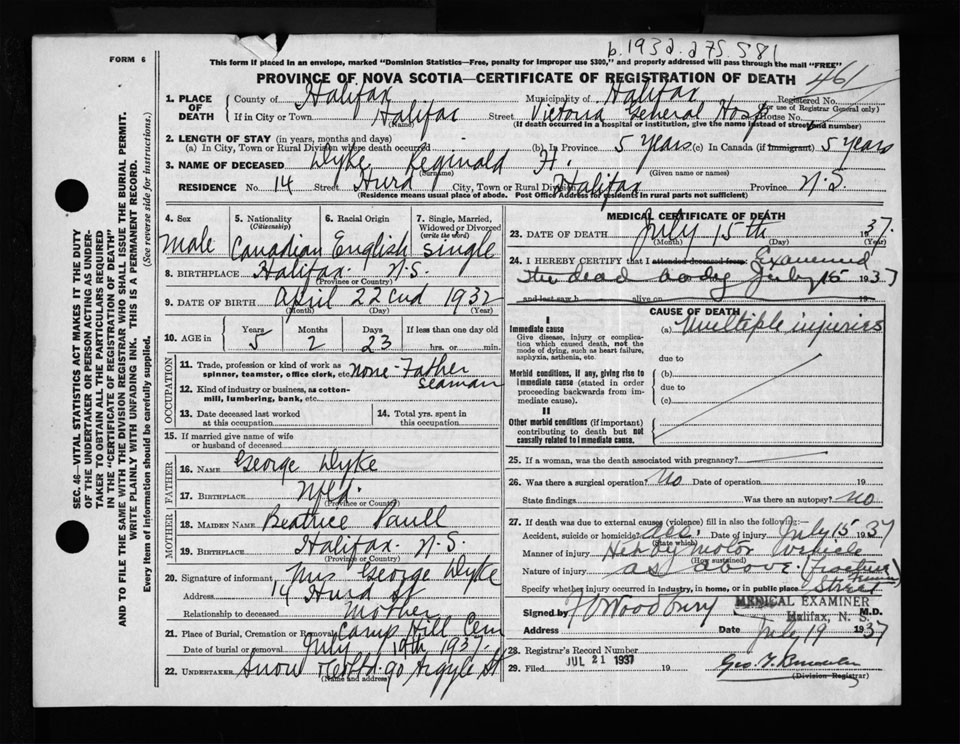 b. 1932. 275. 581
FORM 6
This form if placed in an envelope, marked "Dominion Statistics—Free, penalty for improper use $300," and properly addressed will pass through the mail "FREE"
PROVINCE OF NOVA SCOTIA—CERTIFICATE OF REGISTRATION OF DEATH
461
1. PLACE OF DEATH County of Halifax Municipality of Halifax Registered No.
(For use of Registrar General only)
If in City or Town Halifax Street Victoria General Hosp House No.
(Name) (If death occurred in a hospital or institution, give the name instead of street and number)
2. LENGTH OF STAY (in years, months and days)
(a) In City, Town or Rural Division where death occurred (b) In Province 5 years (c) In Canada (if immigrant) 5 years
3. NAME OF DECEASED Dyke Reginald H.
(Surname) (Given name or names)
RESIDENCE No. 14 Street Hurd City, Town or Rural Division Halifax Province N.S.
(Residence means usual place of abode. Post Office Address for residents in rural parts not sufficient)
4. Sex
Male
5. Nationality
(Citizenship)
Canadian
6. Racial Origin
English
7. Single, Married, Widowed or Divorced
(write the word)
Single
8. BIRTHPLACE Halifax. N.S.
(Province or Country)
9. DATE OF BIRTH April 22nd 1932
(Month) (Day) (Year)
10. AGE in Years Months Days If less than one day old
5 2 23 hrs. or min.
OCCUPATION
11. Trade, profession or kind of work as spinner, teamster, office clerk, etc. none-Father
seaman
12. Kind of industry or business, as cotton-mill, lumbering, bank, etc.
13. Date deceased last worked at this occupation
14. Total yrs. spent in this occupation
15. If married give name of wife or husband of deceased
FATHER
16. NAME George Dyke
17. BIRTHPLACE Nfld.
(Province or Country)
MOTHER
18. MAIDEN NAME Beatrice Paull
19. BIRTHPLACE Halifax. N.S.
(Province or Country)
20. Signature of informant Mrs George Dyke
Address 14 Hurd St
Relationship to deceased Mother
21. Place of Burial, Cremation or Removal Camp Hill Cem
Date of burial or removal July 19th 1937.
22. UNDERTAKER Snow & Co Ltd. 90 Argyle St
(Name and address)
MEDICAL CERTIFICATE OF DEATH
23. DATE OF DEATH July 15th 1937.
(Month) (Day) (Year)
24. I HEREBY CERTIFY that I attended deceased from: Examined
the dead body July 15 1937
and last saw h alive on 19
CAUSE OF DEATH
I
Immediate cause (a) Multiple injuries
Give disease, injury or complication which caused death, not the mode of dying, such as heart failure, asphyxia, asthenia, etc.
due to
Morbid conditions, if any, giving rise to immediate cause (stated in order proceeding backwards from immediate cause).
(b)
due to
(c)
II
Other morbid conditions (if important) contributing to death but not causally related to immediate cause.
25. If a woman, was the death associated with pregnancy?
26. Was there a surgical operation? No Date of operation 19
State findings Was there an autopsy? no
27. If death was due to external causes (violence) fill in also the following:—
Accident, suicide or homicide? acc. Date of injury July 15 1937
(State which)
Manner of injury Hit by motor vehicle
(How sustained)
Nature of injury as above (fracture
femur)
Specify whether injury occurred in industry, in home, or in public place Street
Signed by F O Woodbury M.D.
MEDICAL EXAMINER
Halifax, N. S.
Address Date July 19 1937
28. Registrar's Record Number
29. Filed JUL 21 1937
(Division Registrar)
SEC. 46—VITAL STATISTICS ACT MAKES IT THE DUTY
OF THE UNDERTAKER OR PERSON ACTING AS UNDER-
TAKER TO OBTAIN ALL THE PARTICULARS REQUIRED
IN THE "CERTIFICATE OF REGISTRATION OF DEATH"
AND TO FILE THE SAME WITH THE DIVISION REGISTRAR WHO SHALL ISSUE THE BURIAL PERMIT.
WRITE PLAINLY WITH UNFADING INK. THIS IS A PERMANENT RECORD.
Every item of information should be carefully supplied. (See reverse side for instructions.)